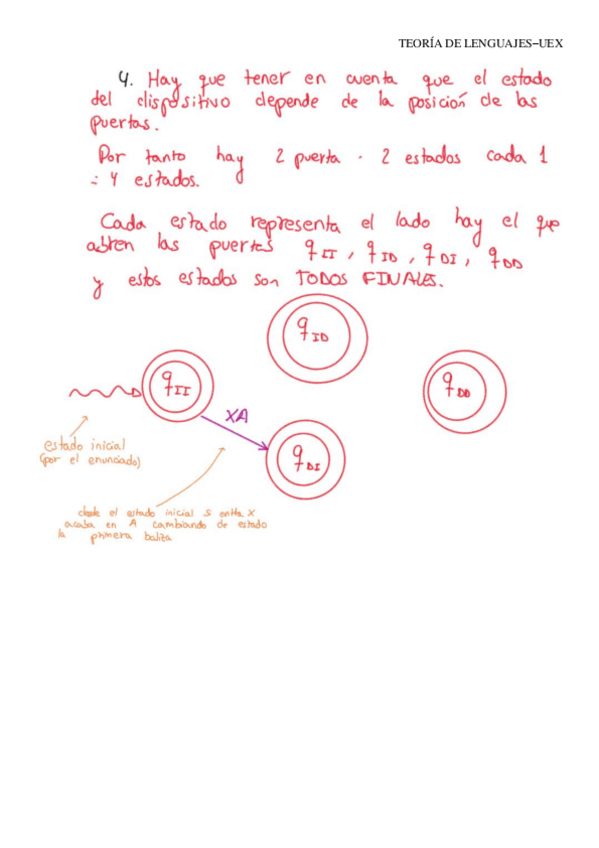 TEORÍA DE LENGUAJES–UEX
4. Hay que tener en cuenta que el estado
del dispositivo depende de la posición de las
puertas.
Por tanto hay 2 puerta · 2 estados cada 1
= 4 estados.
Cada estado representa el lado hay el que
abren las puertas q II , q ID , q DI , q DD
y estos estados son TODOS FINALES.
q ID
q II
q DD
XA
estado inicial
(por el enunciado)
q DI
desde el estado inicial s entra x
acaba en A cambiando de estado
la primera baliza